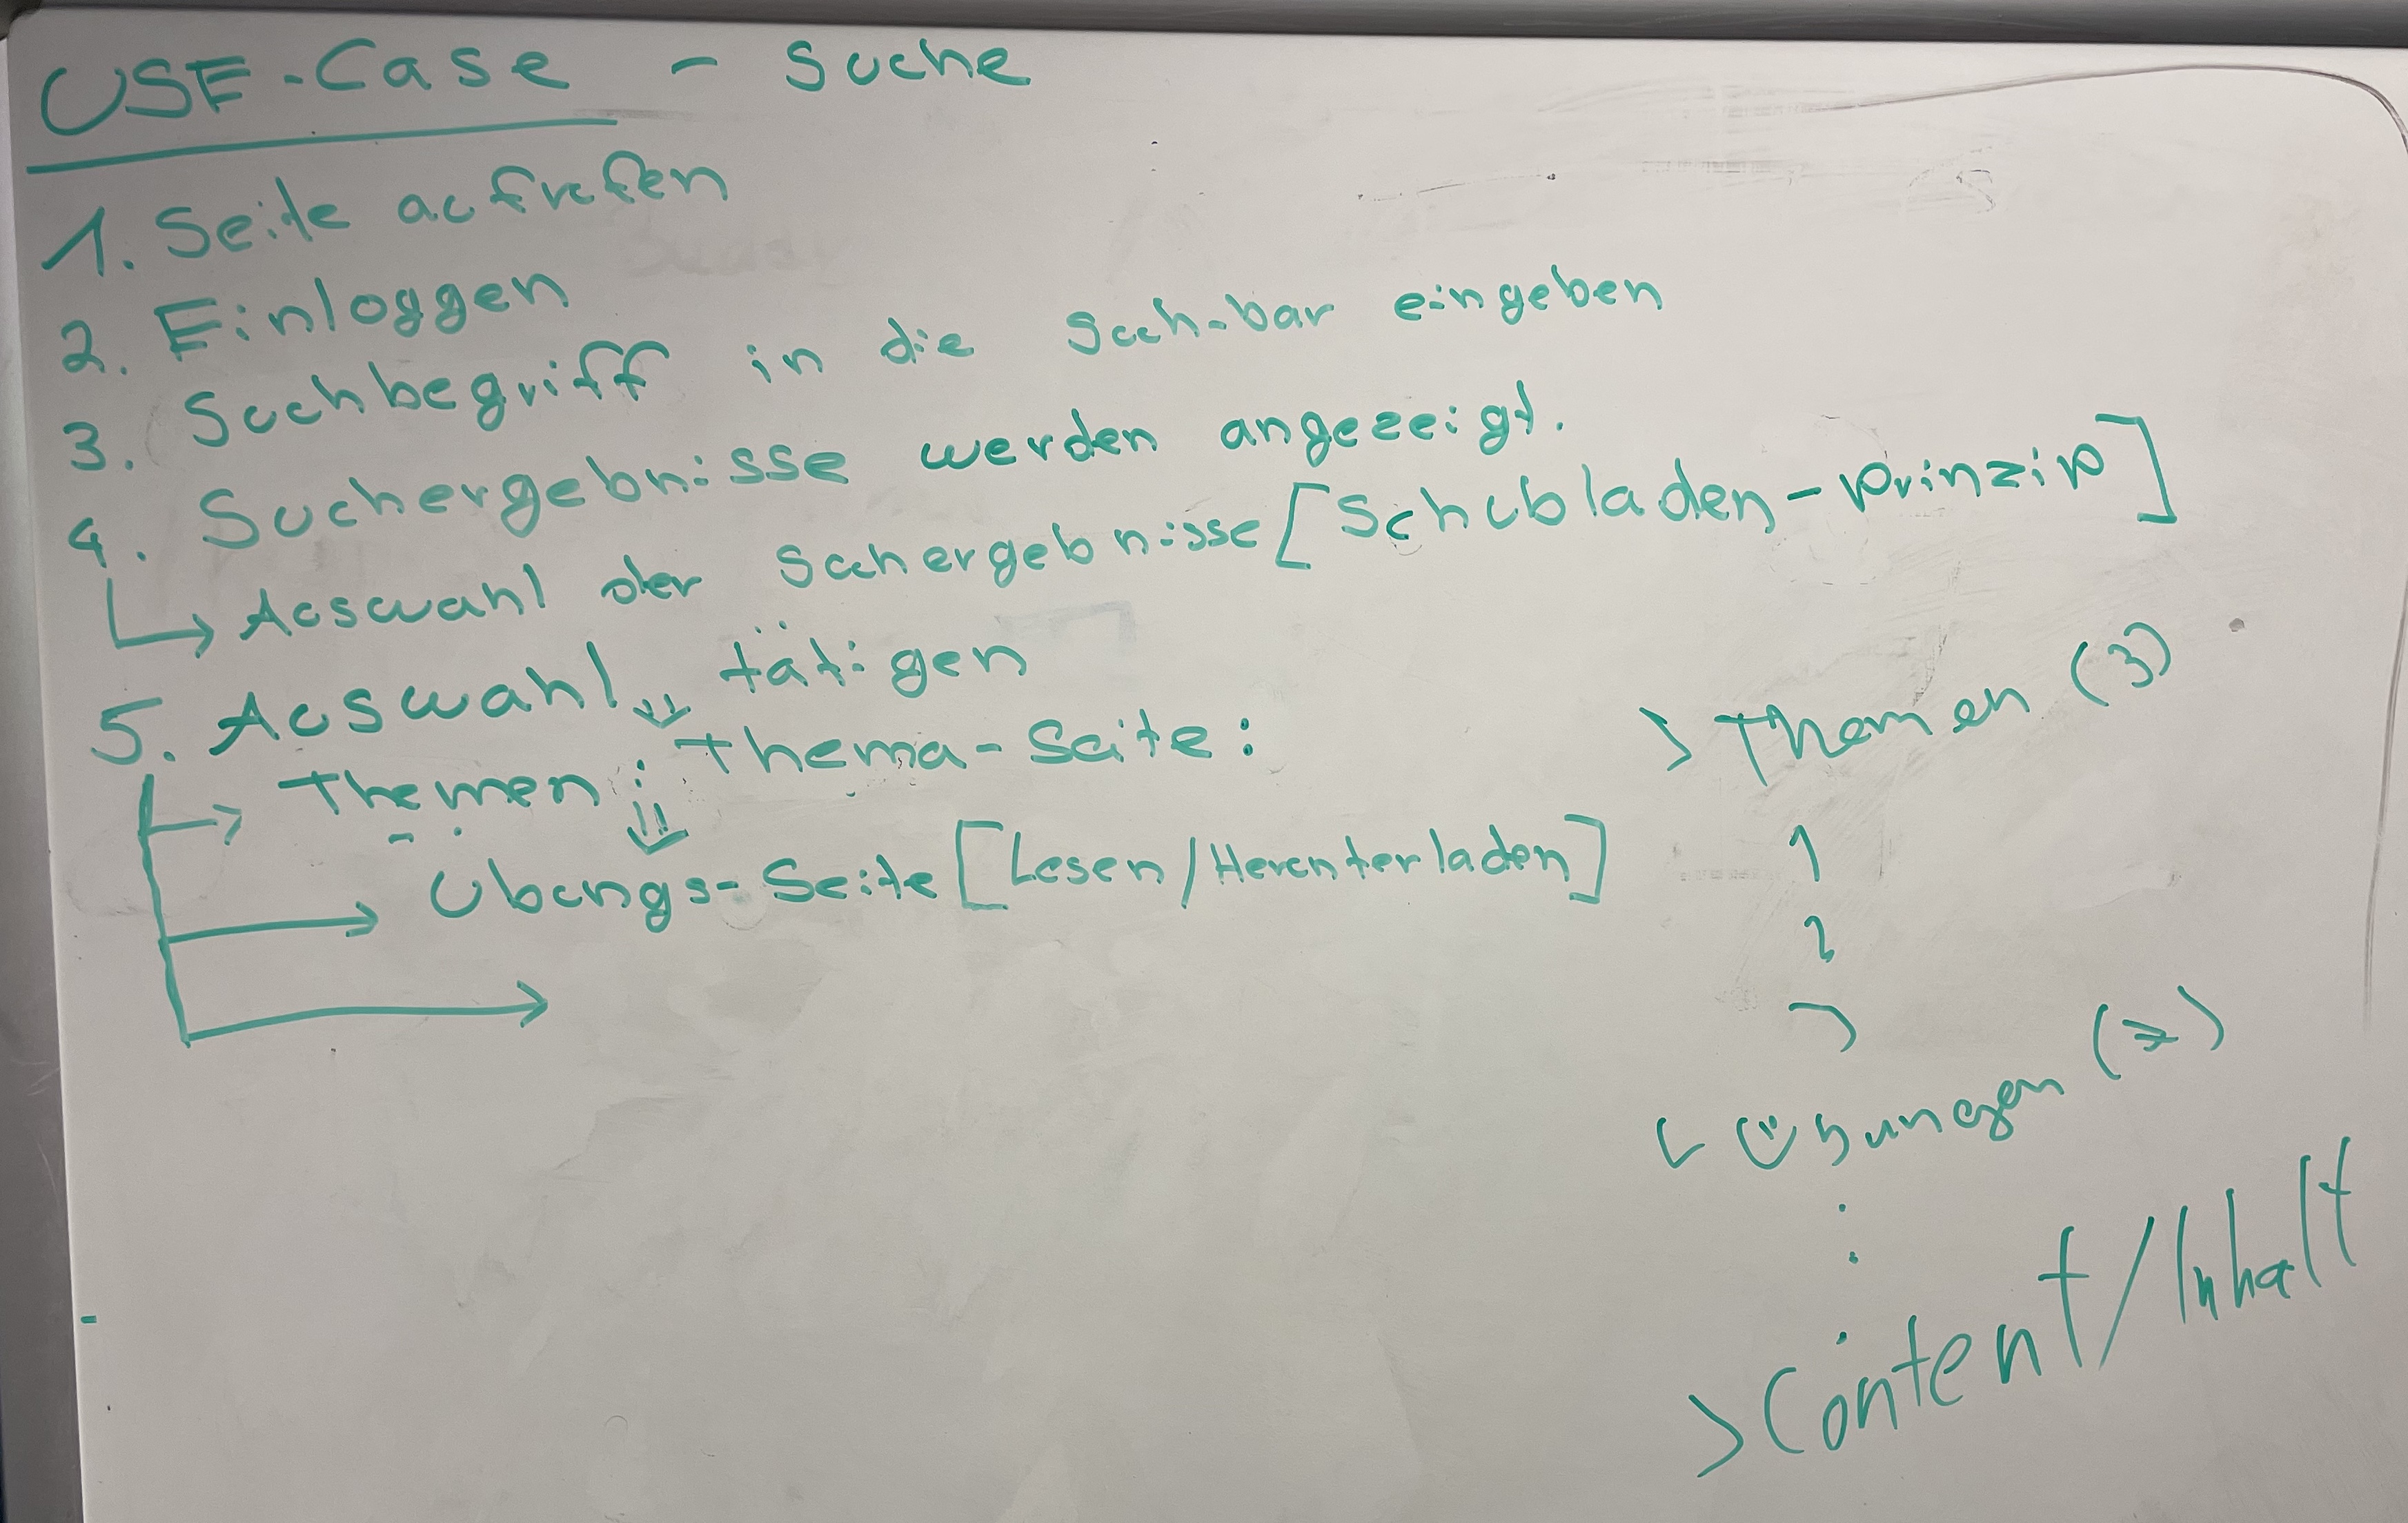 USE-Case - Suche
1. Seite aufrufen
2. Einloggen
3. Suchbegriff in die Such-bar eingeben
4. Suchergebnisse werden angezeigt.
↳ Auswahl der Suchergebnisse [Schubladen-Prinzip]
5. Auswahl tätigen
→ Themen: Thema-Seite:
→ Übungs-Seite [Lesen/Herunterladen]
→
> Themen (3)
1
2
3
Übungen
> Content/Inhalt